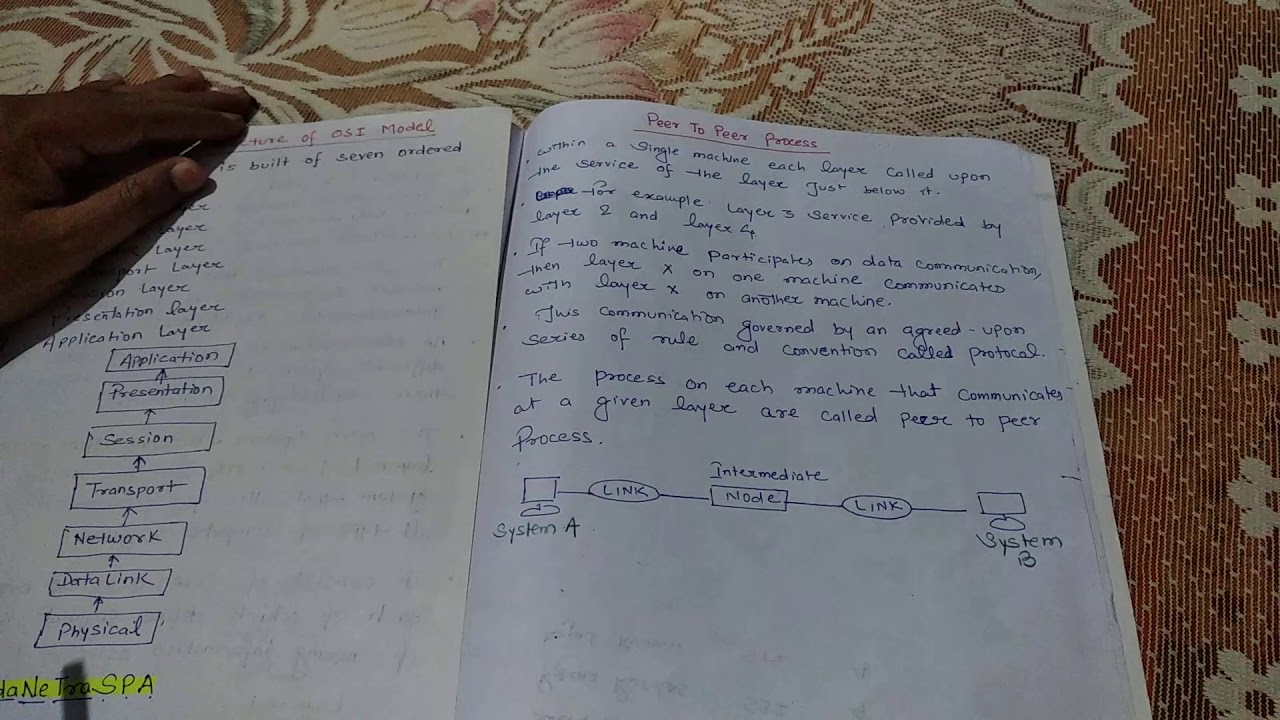 ture of OSI Model
is built of seven ordered
Layer
Layer
Layer
Presentation layer
Application Layer
Application
Presentation
Session
Transport
Network
Data Link
Physical
daNeTraSPA
Peer To Peer Process
. within a single machine each layer called upon
the service of the layer Just below it.
. for example. Layer 3 service provided by
layer 2 and layer 4
. If two machine participates on data communication,
then layer x on one machine communicates
with layer x on another machine.
. This communication governed by an agreed-upon
series of rule and convention called protocal.
. The process on each machine that communicates
at a given layer are called peer to peer
process.
Intermediate
LINK Node LINK
System A
System
B